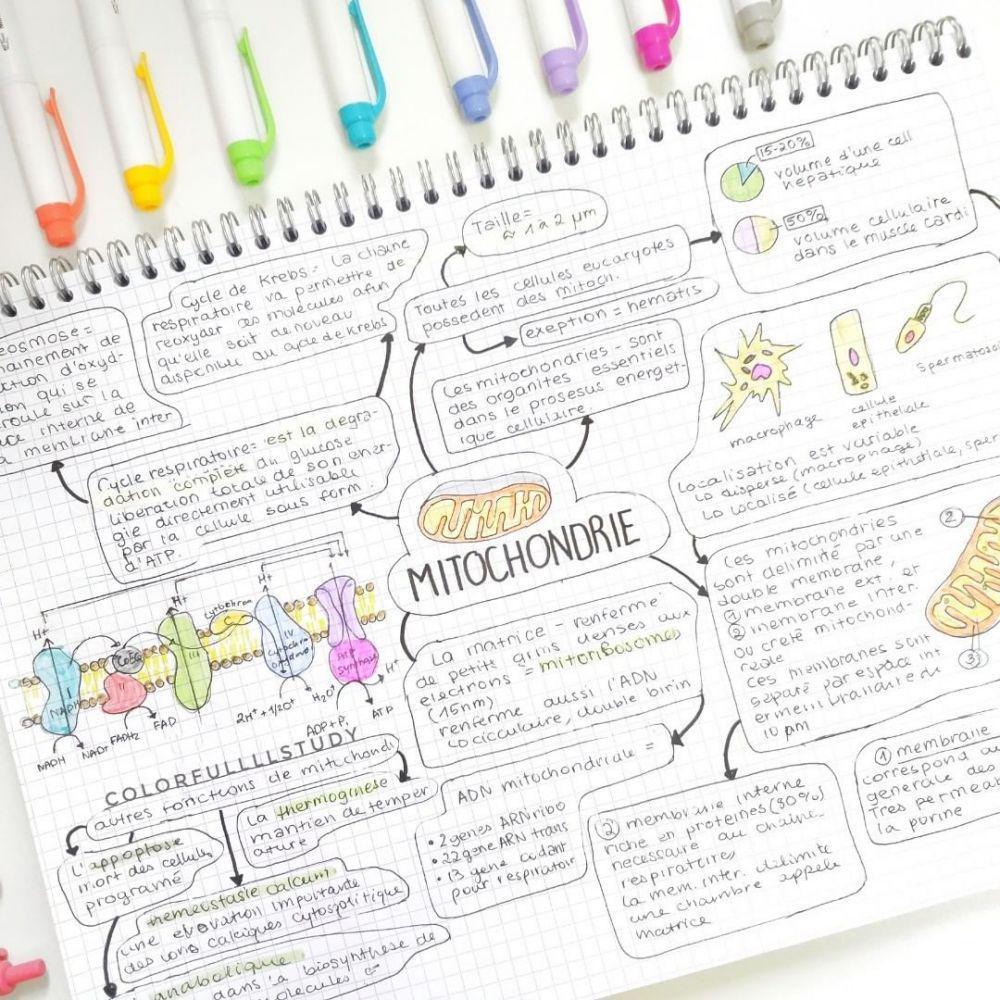 Taille =
≈ 1 à 2 µm
15-20%
volume d'une cell
hepatique
50%
volume cellulaire
dans le muscle cardi
Toutes les cellules eucaryotes
possedent des mitoch.
exeption = hematis
Les mitochondries - sont
des organites essentiels
dans le prosesus energet-
ique cellulaire.
Cycle de Krebs = La chaine
respiratoire va permettre de
reoxyder ces molécules afin
qu'elle soit de nouveau
disponible au cycle de Krebs
eosmose =
hainement de
ction d'oxyd-
on qui se
roule sur la
ace interne de
a membrane inter
Cycle respiratoire = est la degra-
dation complète du glucose
liberation totale de son ener-
gie directement utilisable
par la cellule sous form
d'ATP.
macrophage
cellule
epitheliale
spermatosoi
Localisation est variable
disperse (macrophage)
localisé (cellule epithetiale, sper
MITOCHONDRIE
Ces mitochondries
sont delimité par une
double membrane,
① membrane ext. et
② membrane inter.
ou crete mitochond-
reale
ces membranes sont
separé par espace int
10 µm
②
③
La matrice - renferme
de petits grins denses aux
electrons = mitoribosomes
(15nm)
renferme aussi l'ADN
cocirculaire, double birin
H+
H+
H+
H+
I
NADH
CoEQ
II
III
cytochrom
C
IV
cytochrom
oxydase
ATP
synthase
NADH
NAD+
FADH2
FAD
2H+ + 1/2O+
H2O
ADP+Pi
ATP
COLORFULLLLSTUDY
autres fonctions de mitchondi
La thermoginese
mantien de temper
ature
L'appoptose
mort des cellules
programé
hemeostasie calcium
une elevation importante
des ions calciques cytospolitique
anabolique
dans la biosynthese de
olecules
ADN mitochondriale =
• 2 genes ARN ribo
• 22 gene ARN trans
• 13 gene codant
pour respirator
② membrane interne
riche en proteines (80%)
necessaire au chaine
respiratoire,
la mem. inter. delimite
une chambre appele
matrice
① membrane
correspond au
generale des
Tres permeat
la porine